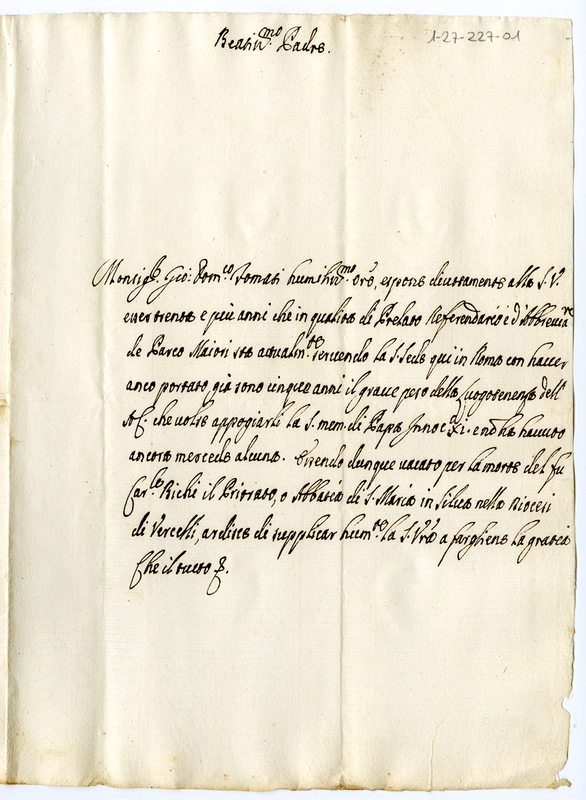 Beatiss.mo Padre.
1-27-227-01
Monsig.r Gio: Dom.co Tomati humiliss.mo Or.e, espone divotamente alla S. V.
esser trenta e più anni che in qualità di Prelato Referendario e d'Abbrevia.re
de Parco Maiori sta actualm.te servendo la S. Sede qui in Roma con haver
anco portato già sono cinque anni il grave peso della Luogotenenza dell'
AC. che volse appogiarli la S. mem. di Papa Innoc. XI. e no ha havuto
ancora mercede alcuna. Essendo dunque vacato per la morte del fu
Car.le Richi il Priorato, o Abbatia di S. Maria in Silica nella Diocesi
di Vercelli, ardisce di supplicar hum.te la S. Vra a fargliene la gratia
Che il tutto &.